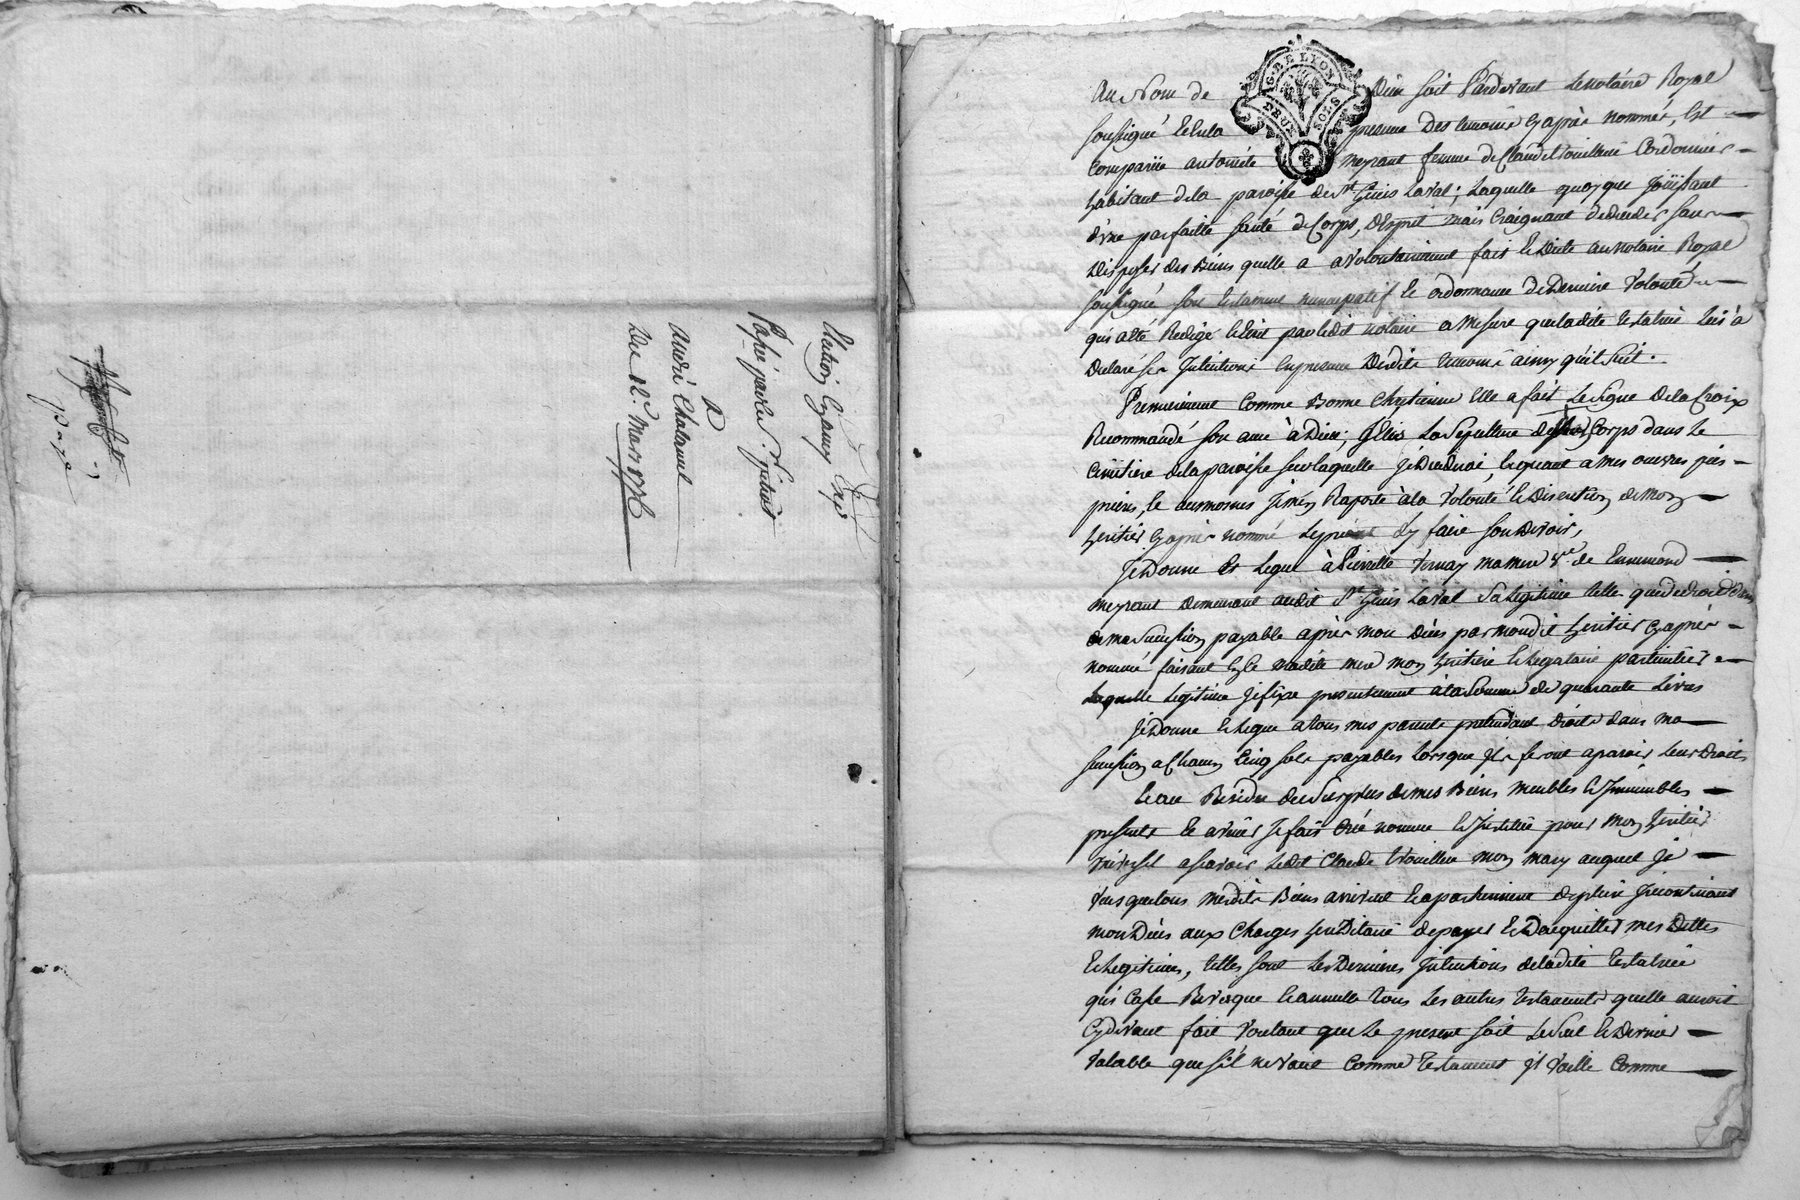 Du 12e. Mars 1776
André Chatanel
A
G. DE LYON
DEUX SOLS
Au Nom de Dieu soit Pardevant Le notaire Royal
soussigné Et En la presence Des temoins Cy après nommés, Est
Comparüe antoinette meyrant femme de Claude trouilleux Cordonnier
habitant de la paroisse de St. Genis Laval; Laquelle quoyque Joüissant
d'une parfaitte santé de Corps, d'Esprit mais Craignant de deceder sans
Disposer des Biens quelle a a volontairement fait Et Dicté au notaire Royal
soussigné son testament nuncupatif Et ordonnance De Derniere Volonté
qui a été Redigé Et Ecrit par ledit notaire a mesure que ladite testatrice Lui a
Declaré ses Intentions En presence Desdits temoins ainsy qu'il suit.
Premierement Comme Bonne Chretienne Elle a fait Le signe De la Croix
Recommandé son ame à Dieu; Jelis La Sepulture de Corps dans Le
Cimitiere de la paroisse sur laquelle Je Decederai, Et quant a mes oeuvres pies
prieres, Et aumones Je m'en Raporte à la Volonté Et Discretion de Mon
heritier Cy après nommé Le priant d'y faire son Devoir,
Je Donne Et Legue à Pierrette Vernay ma mere Ve. de Ennemond
meyrant demeurant audit St. Genis Laval Sa Legitime telle que de droit dans
de ma Succession payable après mon décès par mondit heritier Cy après
nommé faisant En Ce madite mere mon heritiere Et Legataire particuliere
Laquelle Legitime Je fixe presentement à la Somme de quarante Livres
Je Donne Et Legue a tous mes parents pretendant droits dans ma
succession a Chacun Cinq sols payables Lorsque Jls feront aparoir Leurs Droits
Et au Residu du Surplus de mes Biens meubles Et Immeubles
presents Et avenir Je fais Créé nomme Et Institue pour mon heritier
universel a scavoir Ledit Claude trouilleux mon mary auquel Je
Veus que tous mesdits Biens arrivent Et apartiennent de plein Incontinant
mon Décès aux Charges hereditaire de payer Et D'acquitter mes Dettes
Et Legitimes, telles sont Les Dernieres Intentions de ladite testatrice
qui Casse Revoque Et annulle tous Les autres testaments quelle auroit
Cy devant fait Voulant que Le present soit Le seul Et Dernier
Valable que s'il ne vaut Comme testament Jl vaille Comme